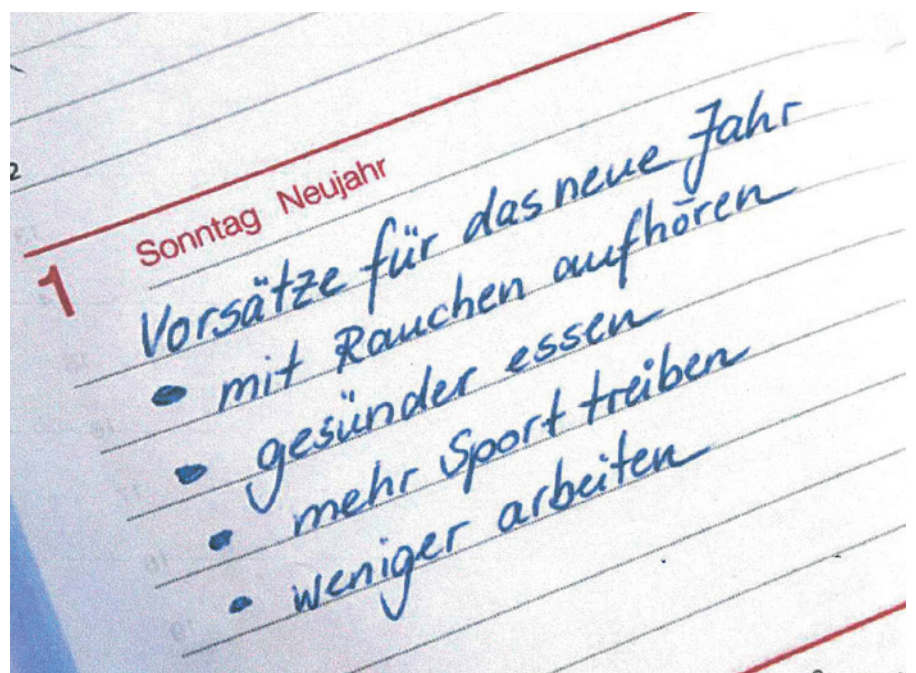 Sonntag Neujahr
1
Vorsätze für das neue Jahr
• mit Rauchen aufhören
• gesünder essen
• mehr Sport treiben
• weniger arbeiten